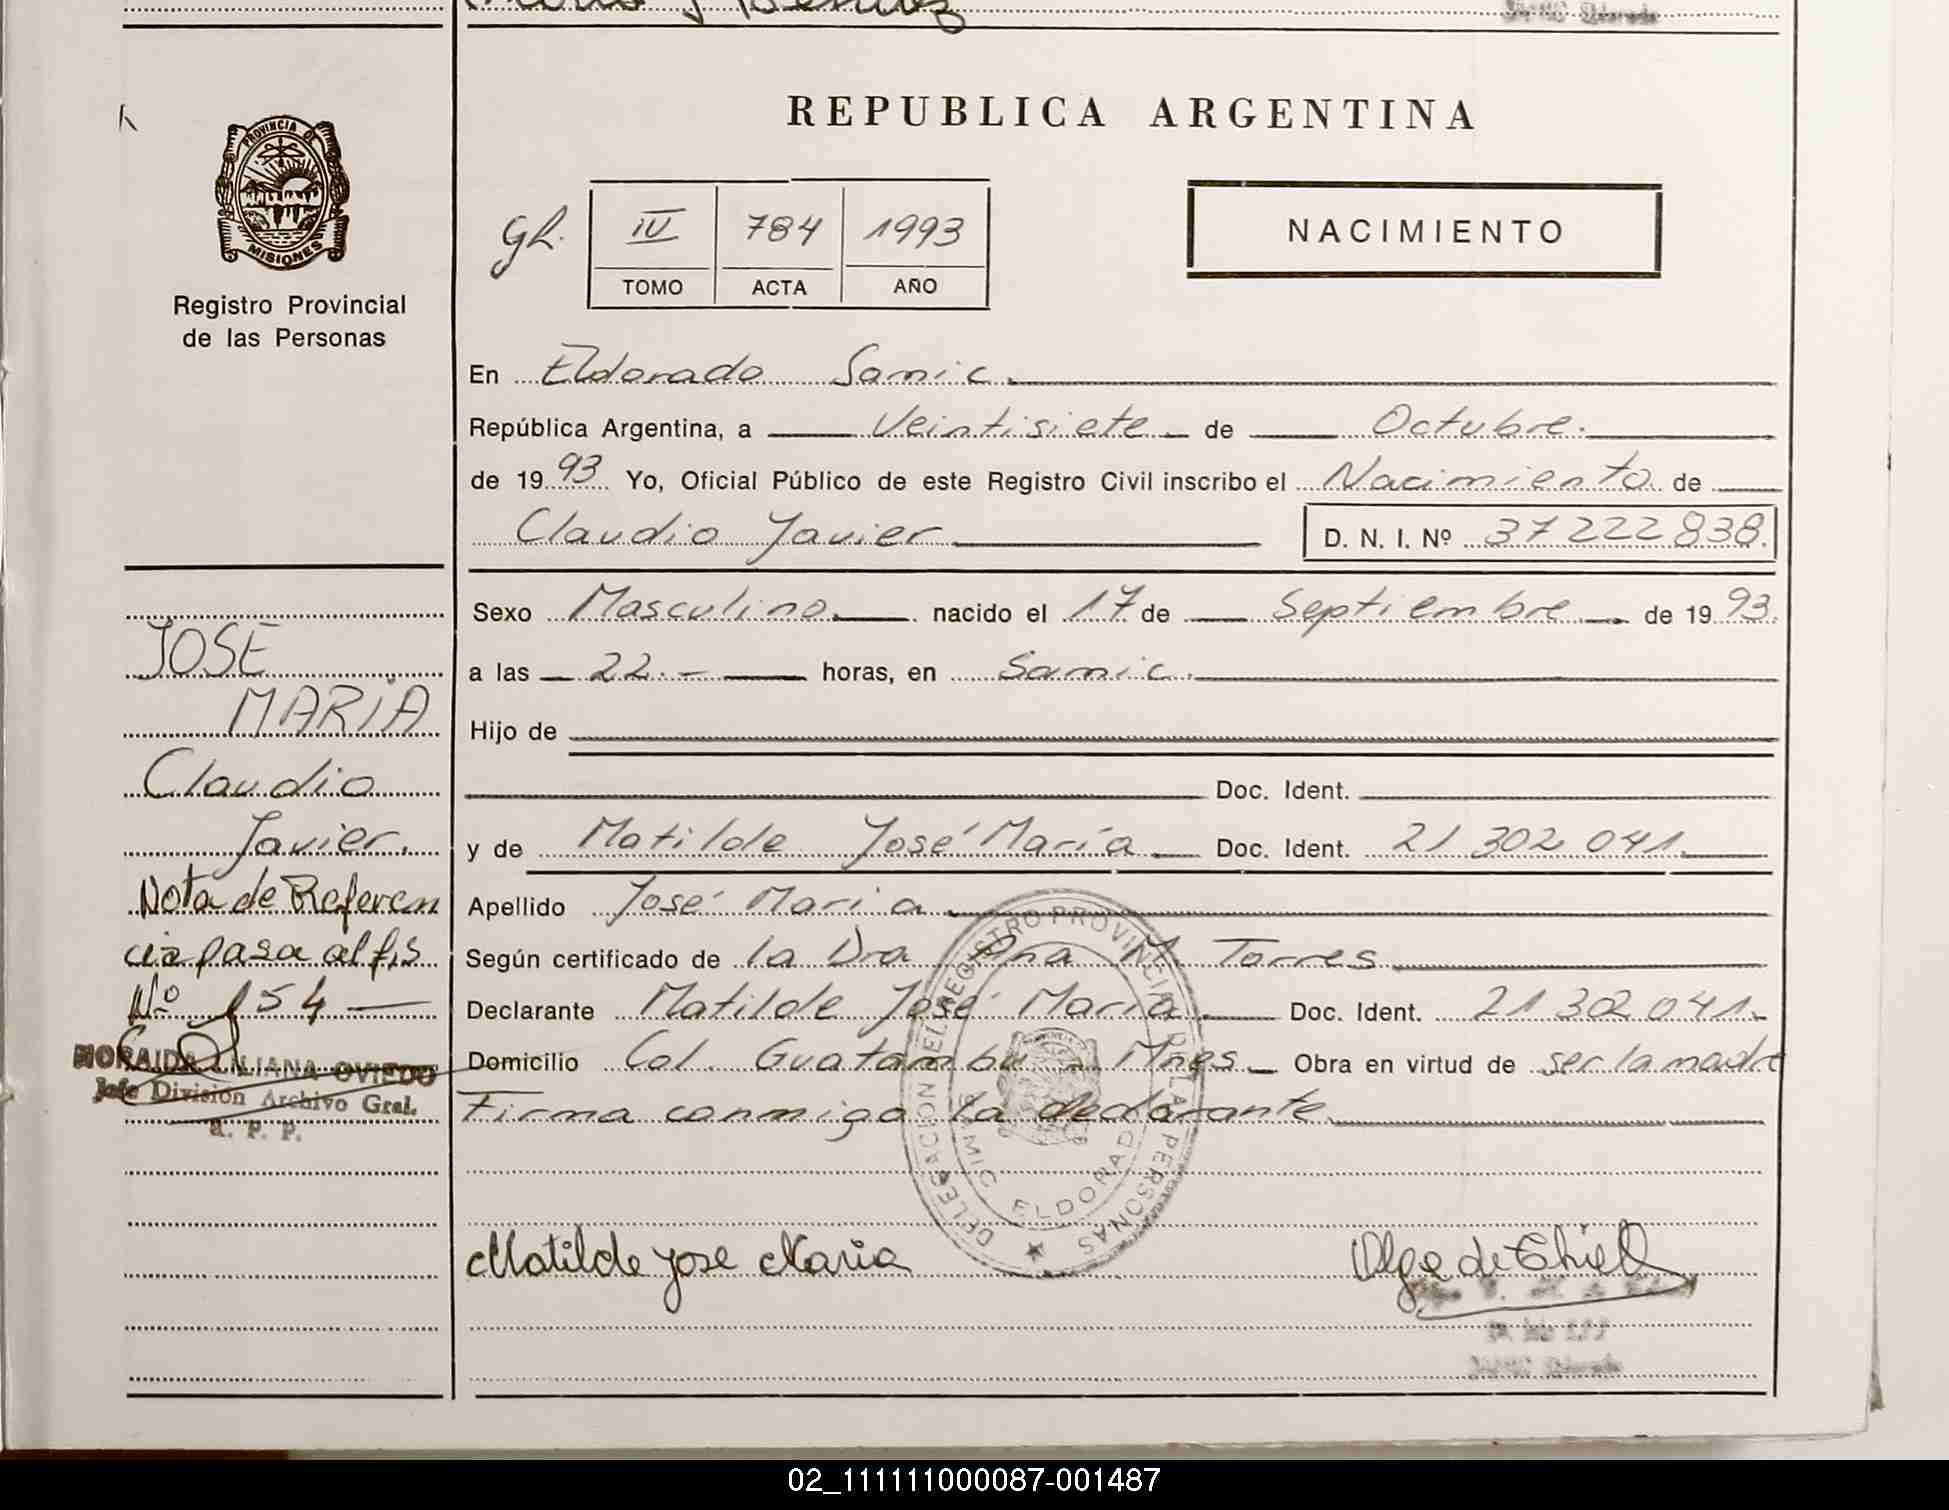 REPUBLICA ARGENTINA
PROVINCIA D
MISIONES
Registro Provincial
de las Personas
gl.
IV 784 1993
TOMO ACTA AÑO
NACIMIENTO
En Eldorado Samic
República Argentina, a Veintisiete de Octubre.
de 1993 Yo, Oficial Público de este Registro Civil inscribo el Nacimiento de
Claudio Javier D. N. I. Nº 37 222 838.
Sexo Masculino nacido el 17 de Septiembre de 1993.
a las 22.- horas, en Samic.
Hijo de
Doc. Ident.
y de Matilde José María Doc. Ident. 21 302 041.
Apellido José Maria
Según certificado de la Dra Ana M. Torres
Declarante Matilde José María Doc. Ident. 21 302 041.
Domicilio Col. Guatambu - Mnes Obra en virtud de ser la madre
Firma conmigo la declarante
Matilde Jose Maria
Olga de Thiel
JOSE
MARIA
Claudio
Javier.
Nota de Referen
cia pasa al fis
Nº 154 —
NORAIDA LILIANA OVIEDO
Jefe División Archivo Gral.
R. P. P.
DELEGACION DEL REGISTRO PROVINCIAL DE LAS PERSONAS
SAMIC ELDORADO
02_111111000087-001487